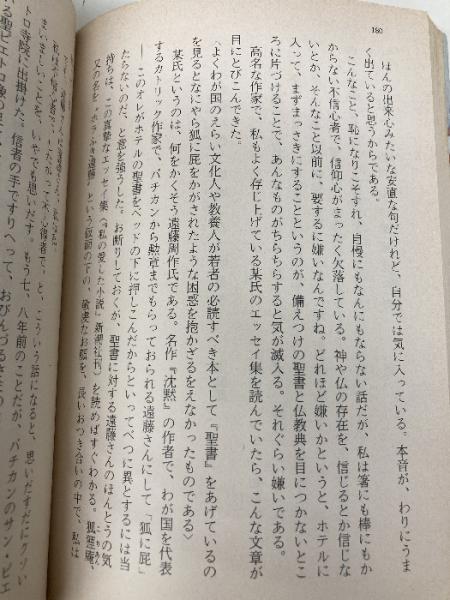 180
はんの出来心みたいな安直な句だけれど、自分では気に入っている。本音が、わりにうま
く出ていると思うからである。
こんなこと、恥になりこそすれ、自慢にもなんにもならない話だが、私は箸にも棒にもか
からない不信心者で、信仰心がまったく欠落している。神や仏の存在を、信じるとか信じな
いとか、そんなこと以前に、要するに嫌いなんですね。どれほど嫌いかというと、ホテルに
入って、まずまっさきにすることというのが、備えつけの聖書と仏教典を目につかないとこ
ろに片づけることで、あんなものがちらちらすると気が滅入る。それぐらい嫌いである。
高名な作家で、私もよく存じ上げている某氏のエッセイ集を読んでいたら、こんな文章が
目にとびこんできた。
〈よくわが国のえらい文化人や教養人が若者の必読すべき本として『聖書』をあげているの
を見るとなにやら狐に屁をかがされたような困惑を抱かざるをえなかったものである〉
某氏というのは、何をかくそう遠藤周作氏である。名作『沈黙』の作者で、わが国を代表
するカトリック作家で、バチカンから勲章までもらっておられる遠藤さんにして「狐に屁」
――このオレがホテルの聖書をベッドの下に押しこんだからといってべつに異とするには当
たらないのだ、と意を強うした。お断りしておくが、聖書に対する遠藤さんのほんとうの気
持ちは、この真摯なエッセイ集（『私の愛した小説』新潮社刊）を読めばすぐわかる。狐狸庵、
又の名を「ホラふき遠藤」という仮面の下の、敬虔なお顔を、長いおつき合いの中で、私は
こういう話になると、思いだすだにクソい
まいましいことを、いやでも思いだす。もう七、八年前のことだが、バチカンのサン・ピエ
トロ寺院に出掛けた。信者の手ですりへって、おびんずるさまの
る聖ピエトロ像の